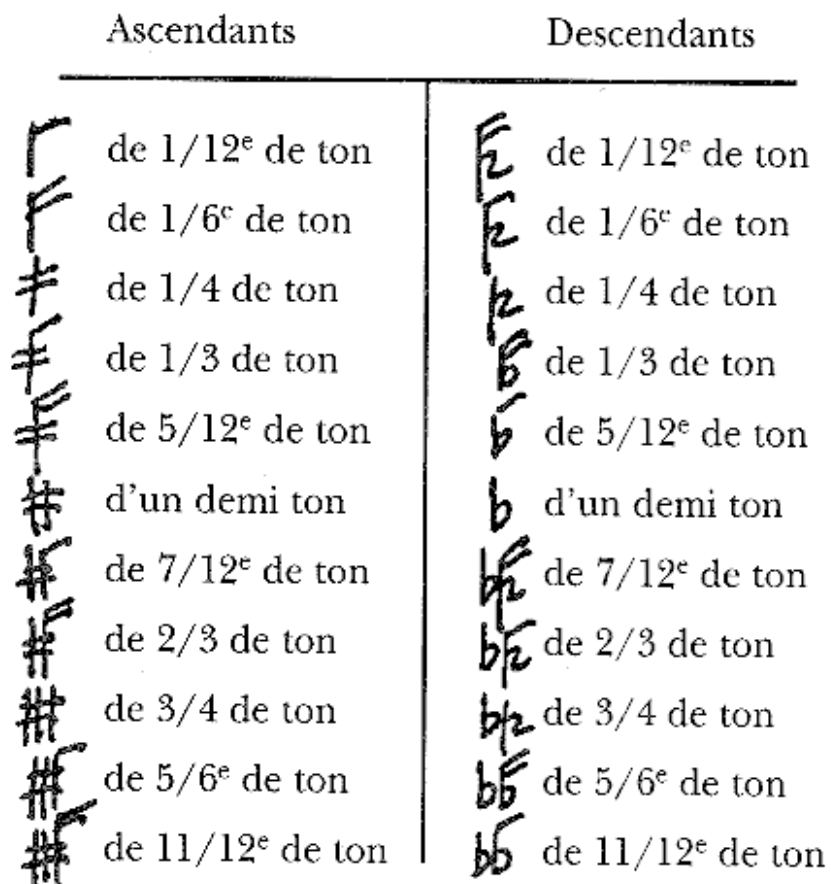 Ascendants Descendants
de 1/12ᵉ de ton de 1/12ᵉ de ton
de 1/6ᵉ de ton de 1/6ᵉ de ton
de 1/4 de ton de 1/4 de ton
de 1/3 de ton de 1/3 de ton
de 5/12ᵉ de ton de 5/12ᵉ de ton
d'un demi ton d'un demi ton
de 7/12ᵉ de ton de 7/12ᵉ de ton
de 2/3 de ton de 2/3 de ton
de 3/4 de ton de 3/4 de ton
de 5/6ᵉ de ton de 5/6ᵉ de ton
de 11/12ᵉ de ton de 11/12ᵉ de ton